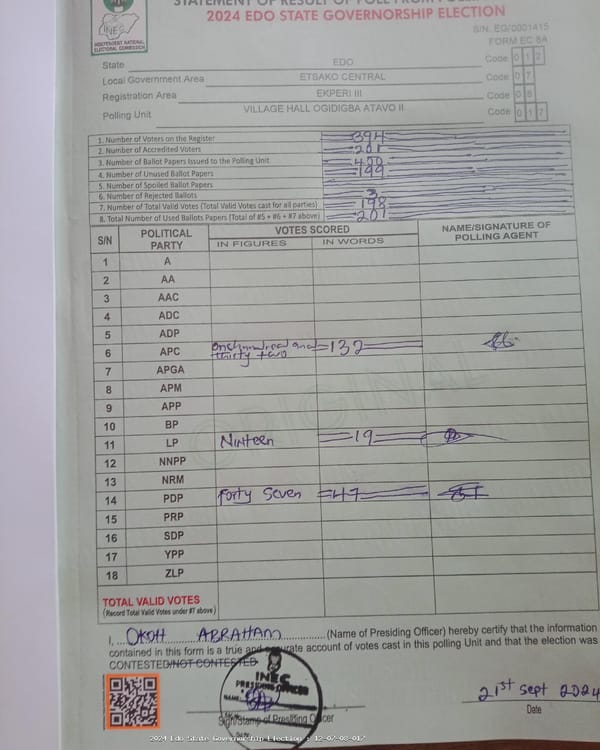 STATEMENT OF RESULT OF POLL FROM POLL
2024 EDO STATE GOVERNORSHIP ELECTION
INEC
INDEPENDENT NATIONAL
ELECTORAL COMMISSION
S/N. EG/0001415
FORM EC 8A
State EDO Code 0 1 2
Local Government Area ETSAKO CENTRAL Code 0 7
Registration Area EKPERI III Code 0 8
Polling Unit VILLAGE HALL OGIDIGBA ATAVO II Code 0 1 7
1. Number of Voters on the Register 394
2. Number of Accredited Voters 201
3. Number of Ballot Papers Issued to the Polling Unit 400
4. Number of Unused Ballot Papers 199
5. Number of Spoiled Ballot Papers
6. Number of Rejected Ballots 3
7. Number of Total Valid Votes (Total Valid Votes cast for all parties) 198
8. Total Number of Used Ballots Papers (Total of #5 + #6 + #7 above) 201
S/N POLITICAL PARTY VOTES SCORED NAME/SIGNATURE OF POLLING AGENT
IN FIGURES IN WORDS
1 A
2 AA
3 AAC
4 ADC
5 ADP
6 APC One hundred and thirty two =132=
7 APGA
8 APM
9 APP
10 BP
11 LP Ninteen =19=
12 NNPP
13 NRM
14 PDP Forty Seven =47=
15 PRP
16 SDP
17 YPP
18 ZLP
ORIGINAL
TOTAL VALID VOTES
(Record Total Valid Votes under #7 above)
I, OKOH ABRAHAM (Name of Presiding Officer) hereby certify that the information
contained in this form is a true and accurate account of votes cast in this polling Unit and that the election was
CONTESTED/NOT CONTESTED
INEC
PRESIDING OFFICER
NAME
Sign/Stamp of Presiding Officer
21st Sept 2024
Date
2024 Edo State Governorship Election : 12-07-08-017